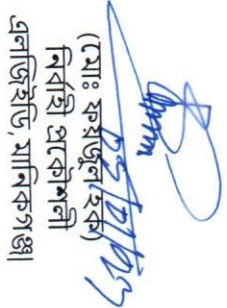 (মোঃ ফয়জুল হক)
নির্বাহী প্রকৌশলী
এলজিইডি, মানিকগঞ্জ।